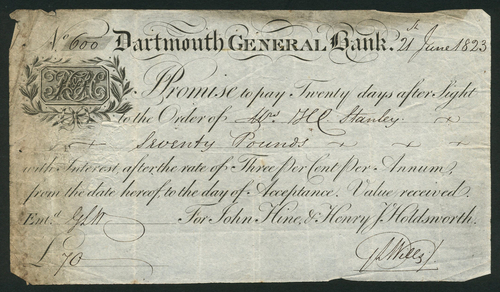 No 600 Dartmouth GENERAL Bank. 21st June 1823
I Promise to pay Twenty days after Sight
to the Order of Mrs. Stanley
Seventy Pounds
with Interest, after the rate of Three Per Cent Per Annum,
from the date hereof to the day of Acceptance. Value received.
Entd. For John Hine, & Henry J. Holdsworth.
£ 70